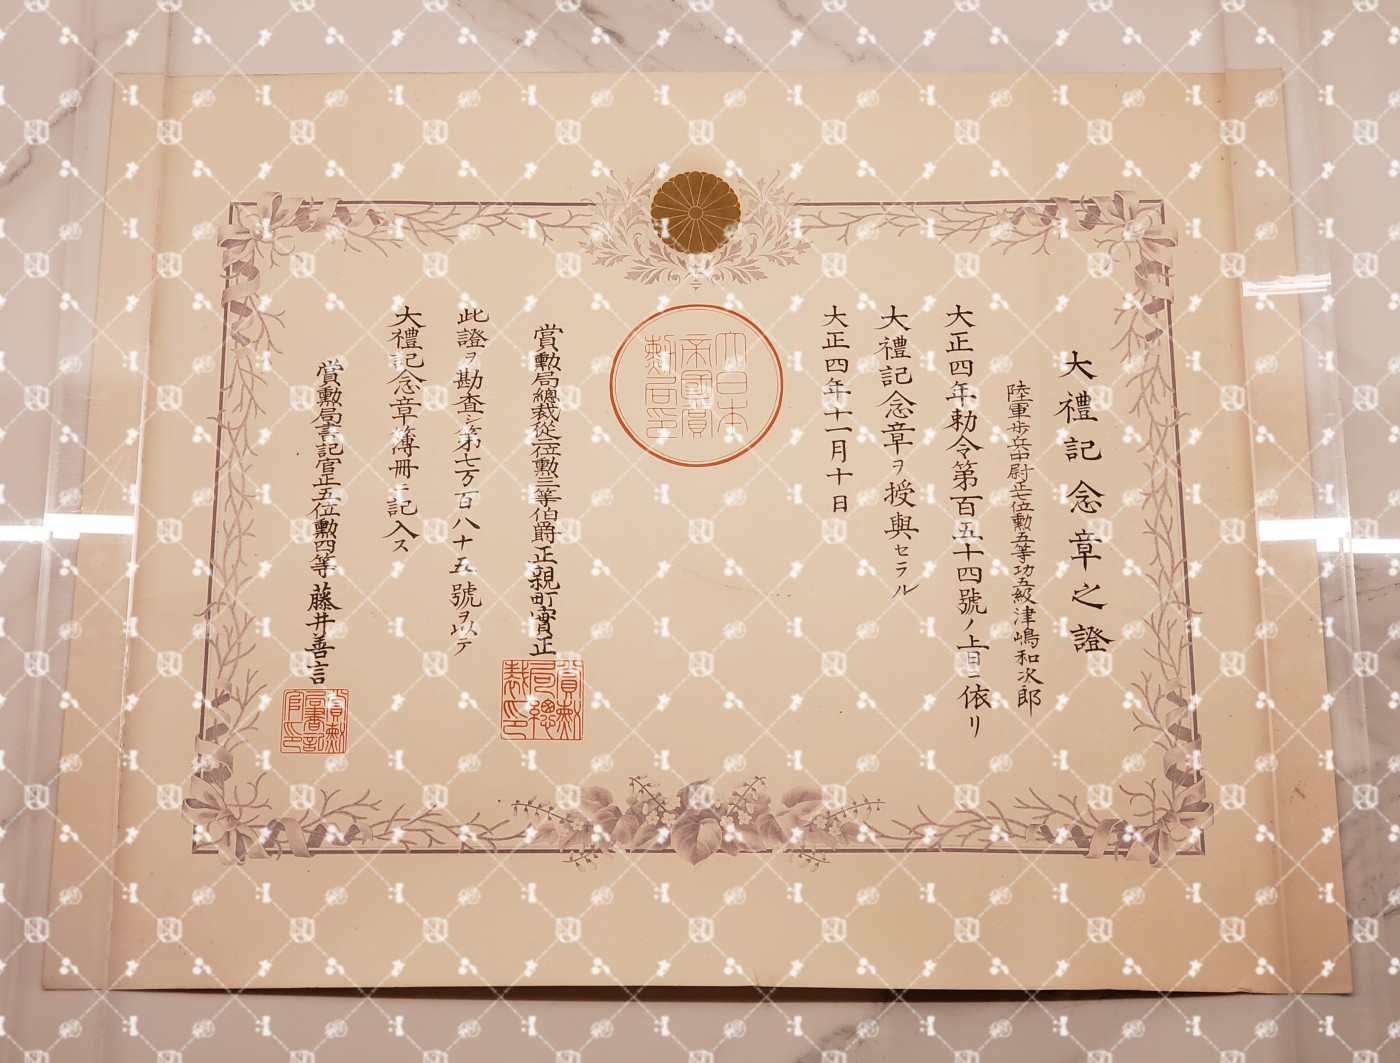 大禮記念章之證
陸軍歩兵中尉正七位勲五等功五級津嶋和次郎
大正四年勅令第百五十四號ノ上旨ニ依リ
大禮記念章ヲ授與セラル
大正四年十一月十日
大日本
帝國賞
勲局印
賞勲局總裁從二位勲三等伯爵正親町實正
賞勲
局總
裁印
此證ヲ勘査シ第七万百八十五號ヲ以テ
大禮記念章簿冊ニ記入ス
賞勲局書記官正五位勲四等藤井善言
賞勲
局書記
官印